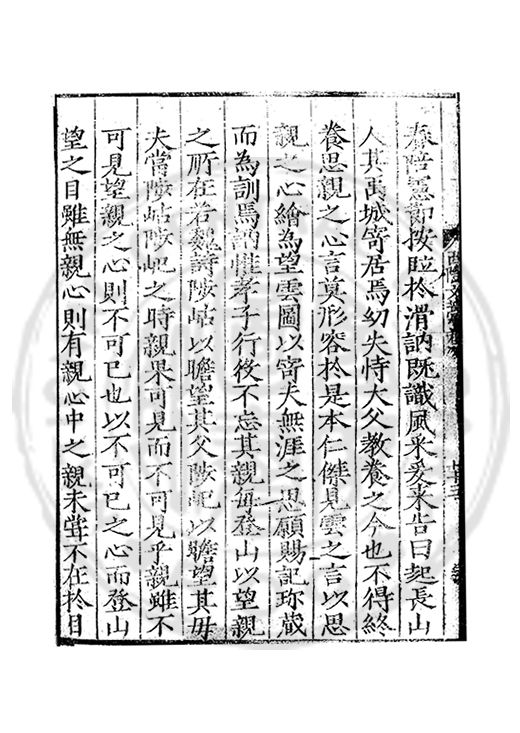 春陪憲節按臨於渭訥既識風采爰来告曰起長山
人其禹城寄居焉幼失恃大父教養之今也不得終
養思親之心言莫形容於是本仁傑見雲之言以思
親之心繪為望雲圖以寄夫無涯之思願賜記珎蔵
而為訓焉訥惟孝子行役不忘其親每登山以望親
之所在若魏詩陟岵以瞻望其父陟屺以瞻望其母
夫當陟岵陟屺之時親果可見而不可見乎親雖不
可見望親之心則不可已也以不可已之心而登山
望之目雖無親心則有親心中之親未嘗不在於目